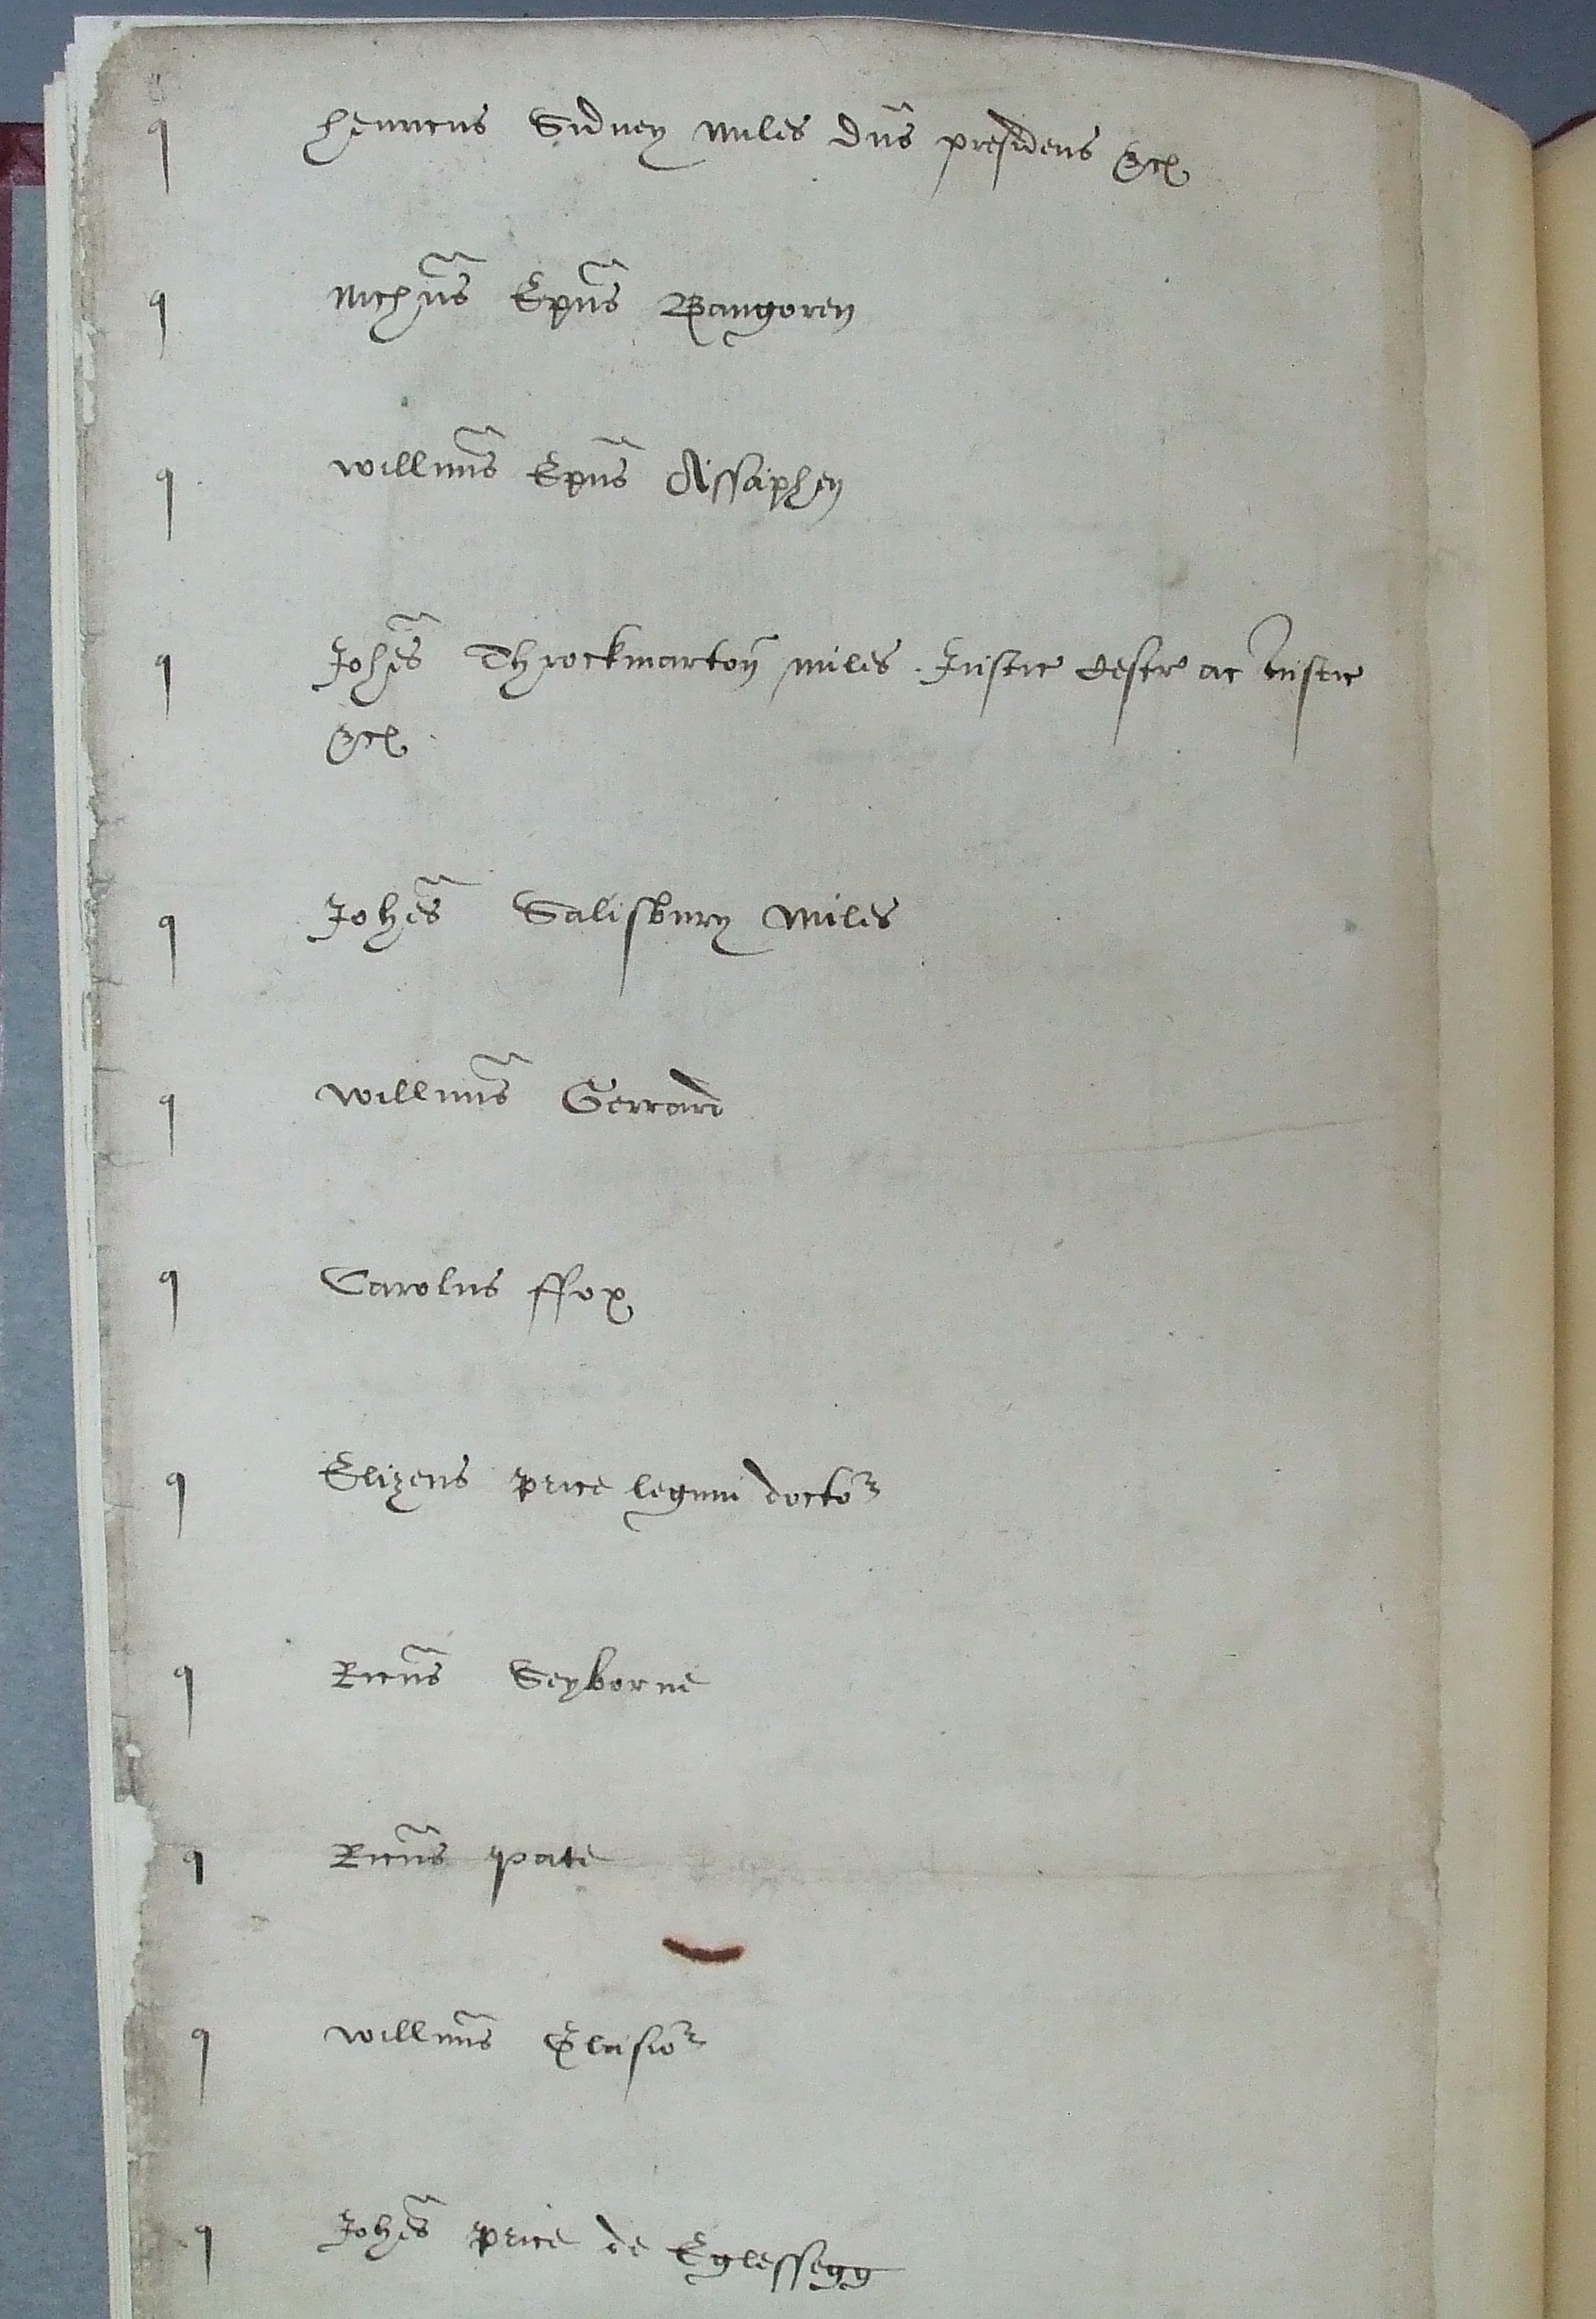 q henricus Sidney miles dns presidens &c
q Nichus Epus Bangoren
q willmus Epus Assaphen
q Johes Throckmarton miles Justic Cestr ac Justic
&c
q Johes Salisbury miles
q willmus Gerrard
q Carolus ffox
q Elizeus price legum doctor
q Ricus Seyborne
q Ricus pate
q willmus Glasior
q Johes price de Eglessegg